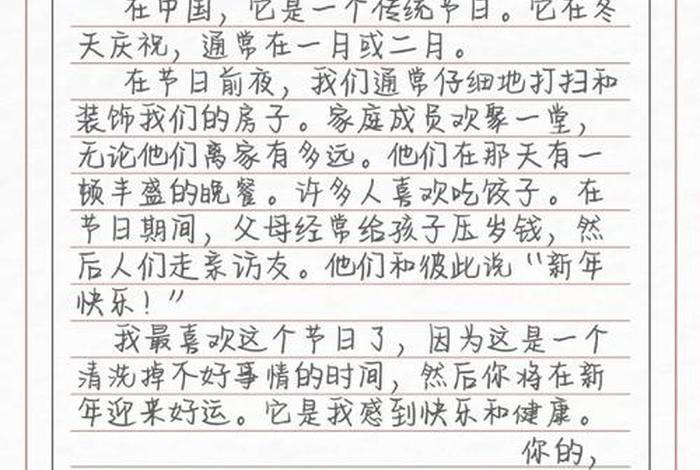 在中国，它是一个传统节日。它在冬
天庆祝，通常在一月或二月。
在节日前夜，我们通常仔细地打扫和
装饰我们的房子。家庭成员欢聚一堂，
无论他们离家有多远。他们在那天有一
顿丰盛的晚餐。许多人喜欢吃饺子。在
节日期间，父母经常给孩子压岁钱，然
后人们走亲访友。他们和彼此说“新年
快乐！”
我最喜欢这个节日了，因为这是一个
清洗掉不好事情的时间，然后你将在新
年迎来好运。它是我感到快乐和健康。
你的，